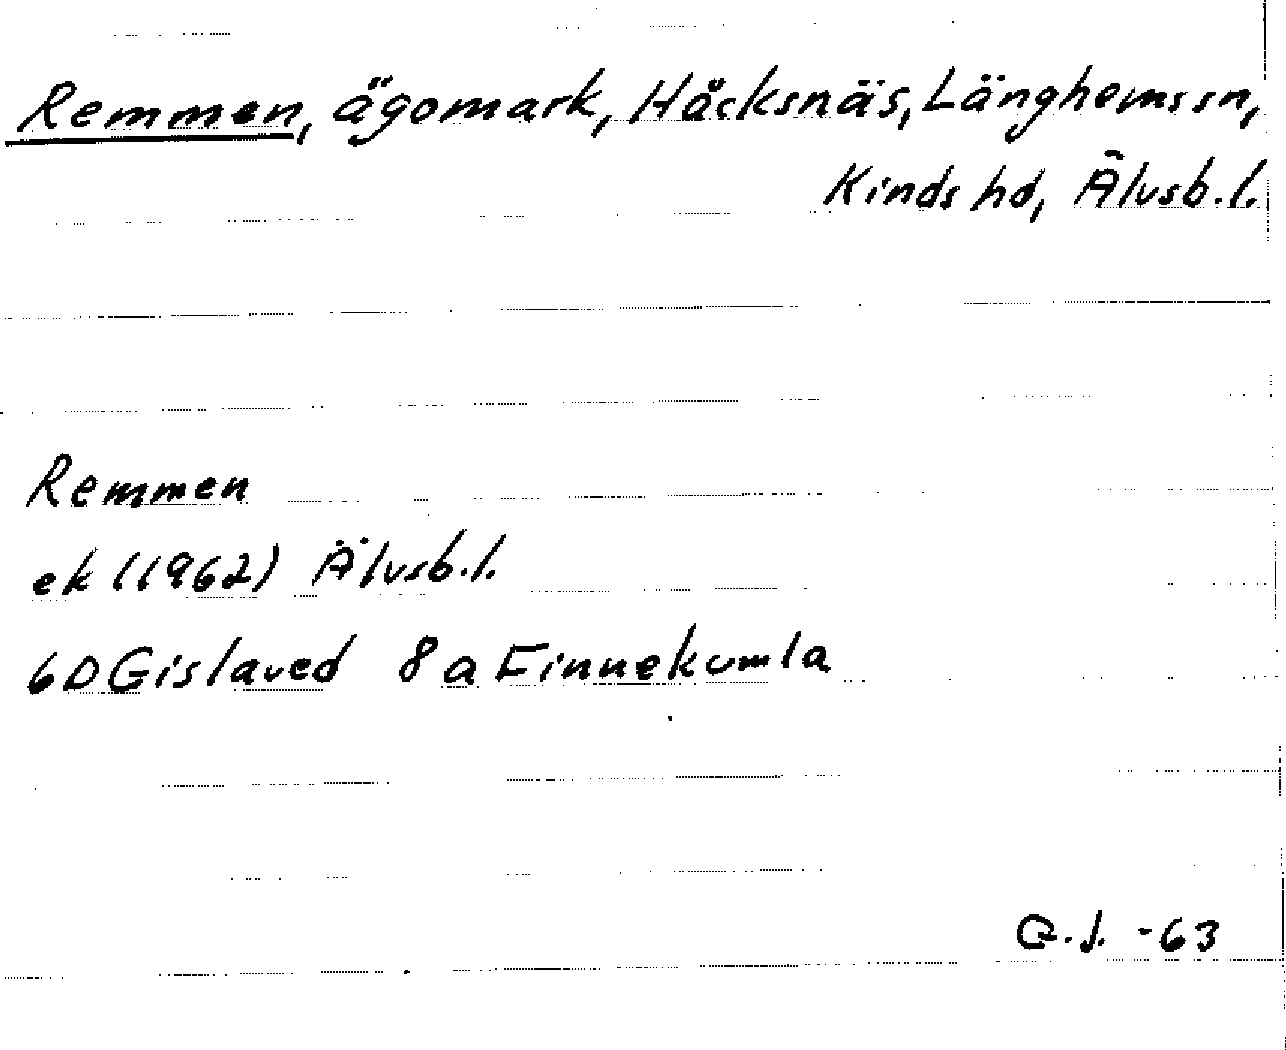 Remmen, ägomark, Håcksnäs, Länghems sn,
Kinds hd, Älvsb.l.
Remmen
ek (1962) Älvsb.l.
6D Gislaved 8a Finnekumla
G.J. -63